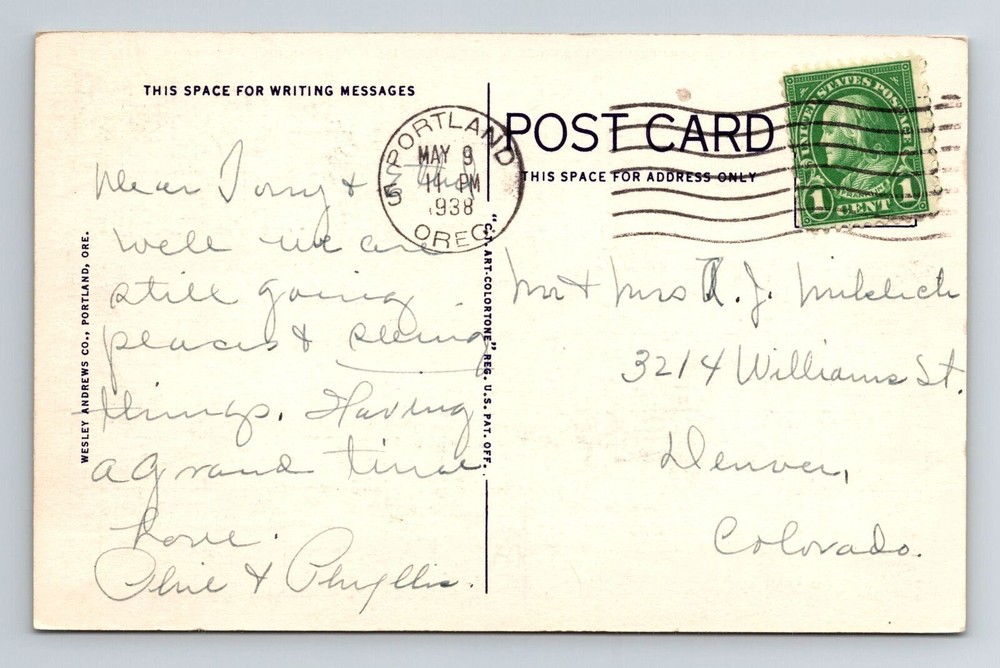 THIS SPACE FOR WRITING MESSAGES
POST CARD
THIS SPACE FOR ADDRESS ONLY
PORTLAND
MAY 9
11 PM
1938
OREG
UNITED STATES POSTAGE
FRANKLIN
1 CENT 1
Dear Tony &
well we are
still going
places & seeing
things. Having
a Grand time
Love.
Phil & Phyllis.
Mr & Mrs R. J. Miklich
3214 Williams St.
Denver,
Colorado.
WESLEY ANDREWS CO., PORTLAND, ORE.
"C.T. ART-COLORTONE" REG. U.S. PAT. OFF.